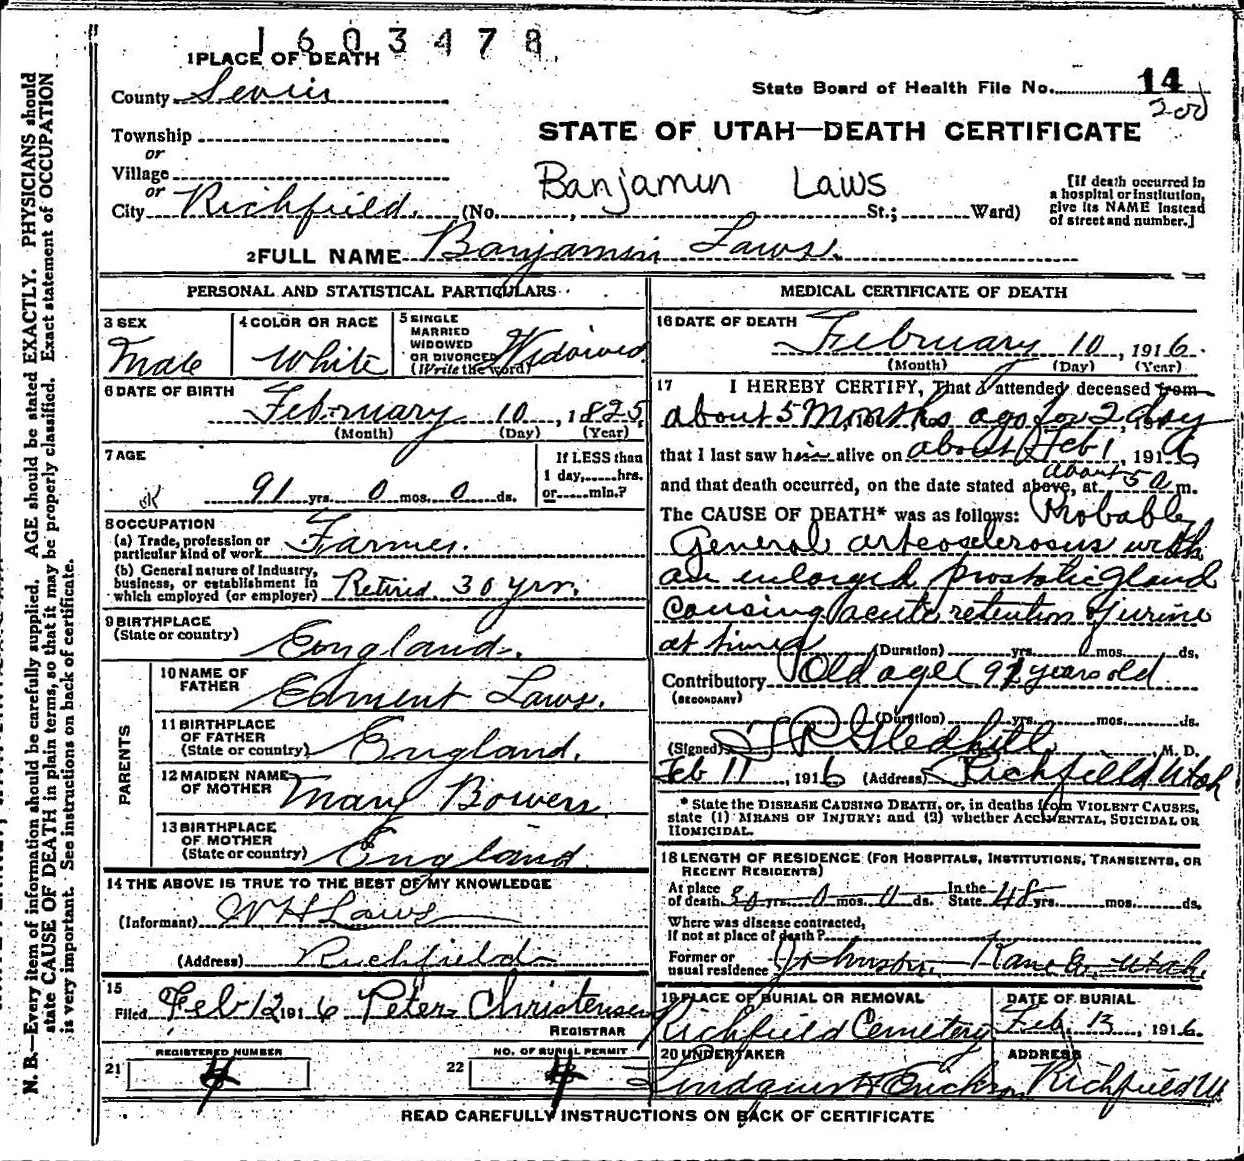 1603478
1 PLACE OF DEATH
County Sevier
State Board of Health File No. 14
200
Township
or
STATE OF UTAH—DEATH CERTIFICATE
Village
or
Banjamin Laws
City Richfield. (No. , St.; Ward)
[If death occurred in
a hospital or institution,
give its NAME instead
of street and number.]
2 FULL NAME Banjamin Laws.
PERSONAL AND STATISTICAL PARTICULARS
3 SEX
Male
4 COLOR OR RACE
White
5 SINGLE
MARRIED
WIDOWED
OR DIVORCED
(Write the word)
Widowed
6 DATE OF BIRTH
February 10, 1825
(Month) (Day) (Year)
7 AGE
If LESS than
1 day, hrs.
or min.?
91 yrs. 0 mos. 0 ds.
8 OCCUPATION
(a) Trade, profession or
particular kind of work Farmer.
(b) General nature of industry,
business, or establishment in
which employed (or employer) Retired 30 yrs.
9 BIRTHPLACE
(State or country) England.
PARENTS
10 NAME OF
FATHER Edment Laws.
11 BIRTHPLACE
OF FATHER
(State or country) England.
12 MAIDEN NAME
OF MOTHER Mary Bowers
13 BIRTHPLACE
OF MOTHER
(State or country) England.
14 THE ABOVE IS TRUE TO THE BEST OF MY KNOWLEDGE
(Informant) W H Laws
(Address) Richfield
15
Filed Feb 12 1916 Peter Christensen
REGISTRAR
21 REGISTERED NUMBER
4
22 NO. OF BURIAL PERMIT
4
MEDICAL CERTIFICATE OF DEATH
16 DATE OF DEATH
February 10, 1916.
(Month) (Day) (Year)
17 I HEREBY CERTIFY, That I attended deceased from
about 5 Months ago for 2 day
that I last saw him alive on about Feb 1, 1916
and that death occurred, on the date stated above, at about 5 a m.
The CAUSE OF DEATH* was as follows: Probably
General arteosclerosus with
an enlarged prostatic gland
causing acute retention of urine
at times (Duration) yrs. mos. ds.
Contributory Old age (91 years old
(SECONDARY)
(Duration) yrs. mos. ds.
(Signed) T R Gledhill, M. D.
Feb 11, 1916 (Address) Richfield Utah
* State the DISEASE CAUSING DEATH, or, in deaths from VIOLENT CAUSES,
state (1) MEANS OF INJURY; and (2) whether ACCIDENTAL, SUICIDAL OR
HOMICIDAL.
18 LENGTH OF RESIDENCE (FOR HOSPITALS, INSTITUTIONS, TRANSIENTS, OR
RECENT RESIDENTS)
At place
of death 30 yrs. 0 mos. 11 ds.
In the
State 48 yrs. mos. ds.
Where was disease contracted,
if not at place of death?
Former or
usual residence Johnson, Kane Co. Utah
19 PLACE OF BURIAL OR REMOVAL
Richfield Cemetery
DATE OF BURIAL
Feb. 13, 1916.
20 UNDERTAKER
Lindquist & Erickson
ADDRESS
Richfield U.
READ CAREFULLY INSTRUCTIONS ON BACK OF CERTIFICATE
N. B.—Every item of information should be carefully supplied. AGE should be stated EXACTLY. PHYSICIANS should
state CAUSE OF DEATH in plain terms, so that it may be properly classified. Exact statement of OCCUPATION
is very important. See instructions on back of certificate.